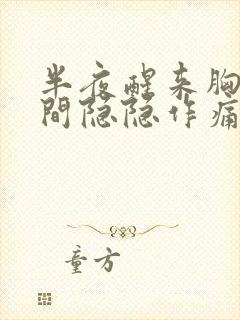 半夜醒来胸
間隐隐作痛
童方